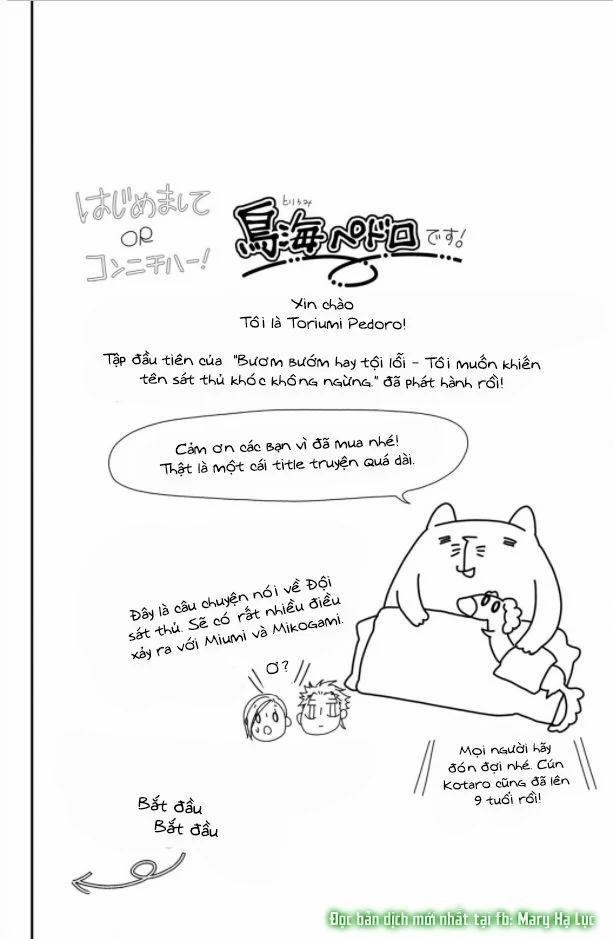 はじめまして
OR
コンニチハー!
とりうみ
鳥海ペドロです!
Xin chào
Tôi là Toriumi Pedoro!
Tập đầu tiên của "Bươm bướm hay tội lỗi - Tôi muốn khiến
tên sát thủ khóc không ngừng." đã phát hành rồi!
Cảm ơn các bạn vì đã mua nhé!
Thật là một cái title truyện quá dài.
Đây là câu chuyện nói về Đội
sát thủ. Sẽ có rất nhiều điều
xảy ra với Miumi và Mikogami.
Ơ?
Mọi người hãy
đón đợi nhé. Cún
Kotaro cũng đã lên
9 tuổi rồi!
Bắt đầu
Bắt đầu
Đọc bản dịch mới nhất tại fb: Mary Hạ Lục